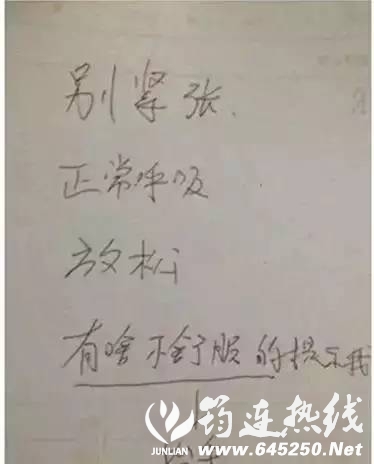 别紧张.
正常呼吸
放松
有啥不舒服的提示我
筠连热线
JUNLIAN
www.645250.Net